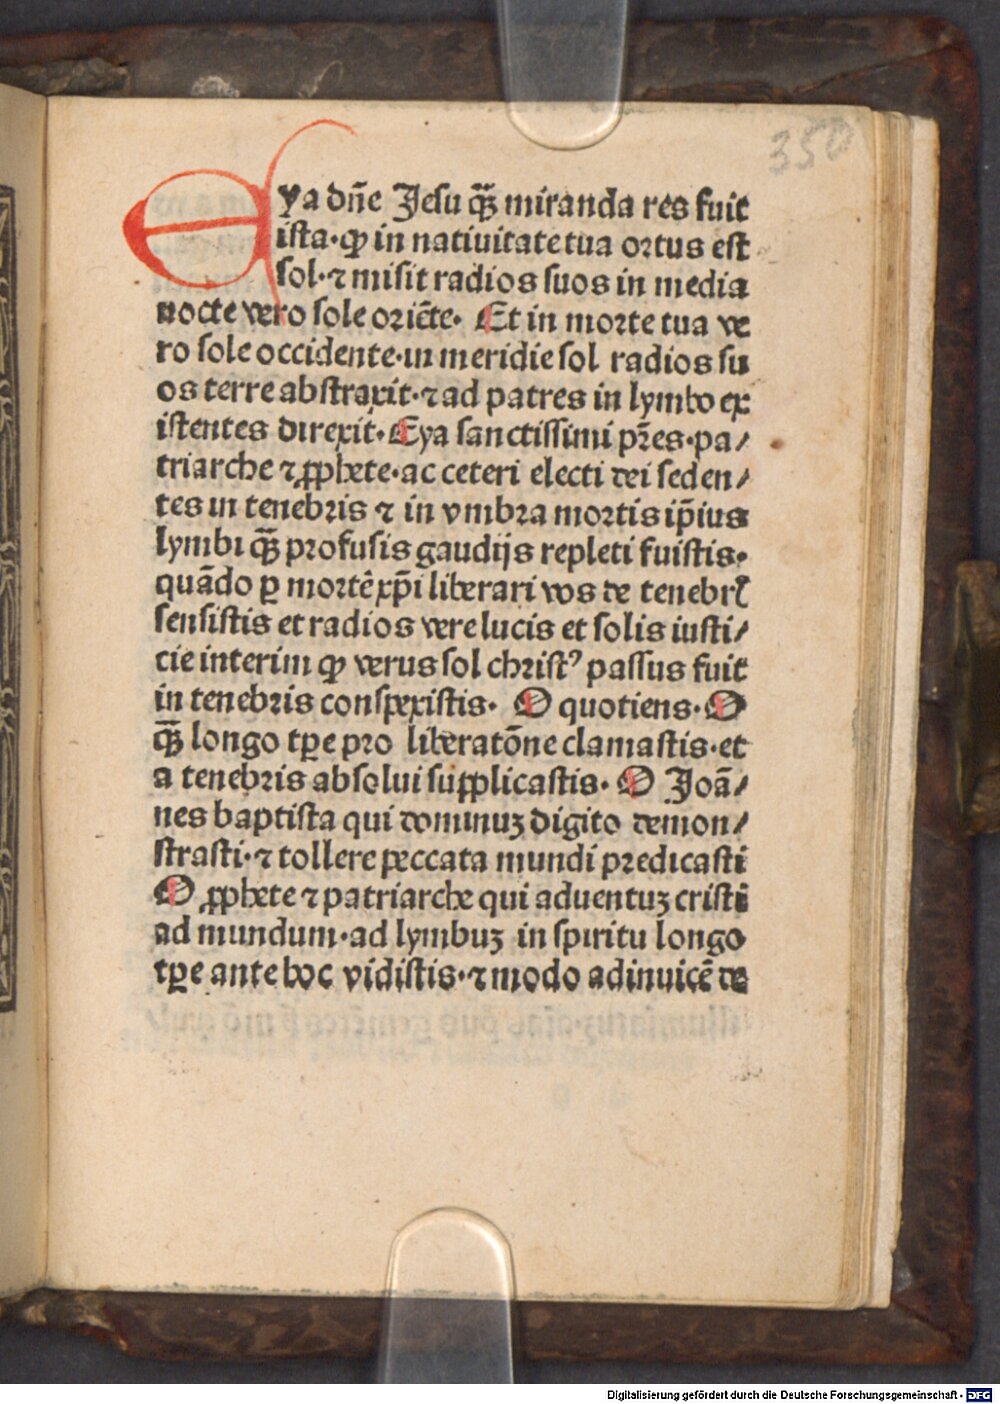 350
Eya dn̄e Jesu qȝ̄ miranda res fuit
ista·qȝ in natiuitate tua ortus est
sol·⁊ misit radios suos in media
nocte vero sole oriēte· Et in morte tua ve
ro sole occidente·in meridie sol radios su
os terre abstraxit·⁊ ad patres in lymbo ex
istentes direxit·Eya sanctissimi pr̄es·pa/
triarche ⁊ ꝓphete·ac ceteri electi dei seden/
tes in tenebris ⁊ in vmbra mortis ip̄ius
lymbi qȝ̄ profusis gaudijs repleti fuistis·
quādo ꝑ mortē xp̄i liberari vos de tenebrꝭ
sensistis et radios vere lucis et solis iusti/
cie interim qȝ verus sol christꝰ passus fuit
in tenebris conspexistis· O quotiens·O
qȝ̄ longo tꝑe pro liberatōne clamastis·et
a tenebris absolui supplicastis· O Joā/
nes baptista qui dominuʒ digito demon/
strasti·⁊ tollere peccata mundi predicasti
O ꝓphete ⁊ patriarche qui aduentuʒ cristi
ad mundum·ad lymbuʒ in spiritu longo
tꝑe ante hoc vidistis·⁊ modo adinuicē de
Digitalisierung gefördert durch die Deutsche Forschungsgemeinschaft - DFG